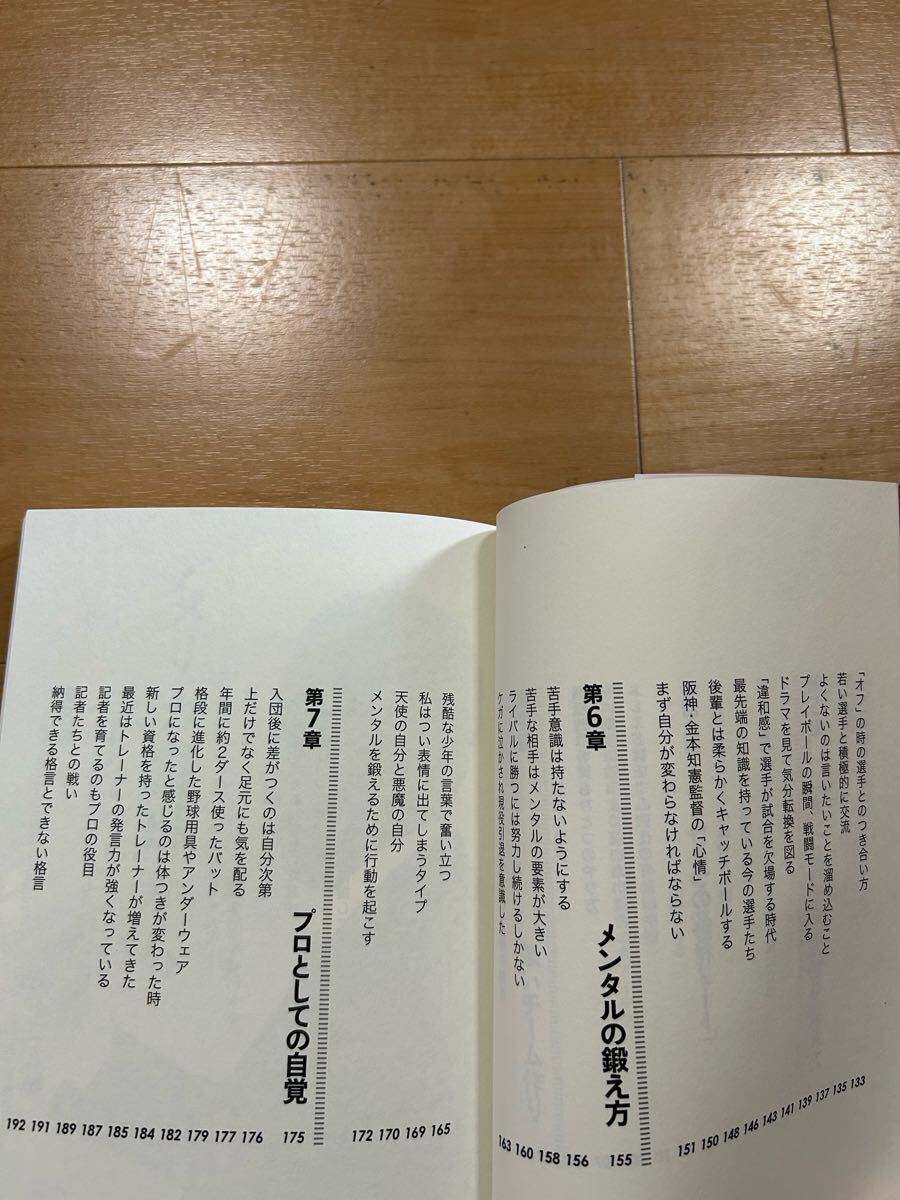 「オフ」の時の選手とのつき合い方 133
若い選手と積極的に交流 135
よくないのは言いたいことを溜め込むこと 137
プレイボールの瞬間、戦闘モードに入る 139
ドラマを見て気分転換を図る 141
「違和感」で選手が試合を欠場する時代 143
最先端の知識を持っている今の選手たち 146
後輩とは柔らかくキャッチボールする 148
阪神・金本知憲監督の「心情」 150
まず自分が変わらなければならない 151
第6章 メンタルの鍛え方 155
苦手意識は持たないようにする 156
苦手な相手はメンタルの要素が大きい 158
ライバルに勝つには努力し続けるしかない 160
ケガに泣かされ現役引退を意識した 163
残酷な少年の言葉で奮い立つ 165
私はつい表情に出てしまうタイプ 169
天使の自分と悪魔の自分 170
メンタルを鍛えるために行動を起こす 172
第7章 プロとしての自覚 175
入団後に差がつくのは自分次第 176
上だけでなく足元にも気を配る 177
年間に約2ダース使ったバット 179
格段に進化した野球用具やアンダーウェア 182
プロになったと感じるのは体つきが変わった時 184
新しい資格を持ったトレーナーが増えてきた 185
最近はトレーナーの発言力が強くなっている 187
記者を育てるのもプロの役目 189
記者たちとの戦い 191
納得できる格言とできない格言 192